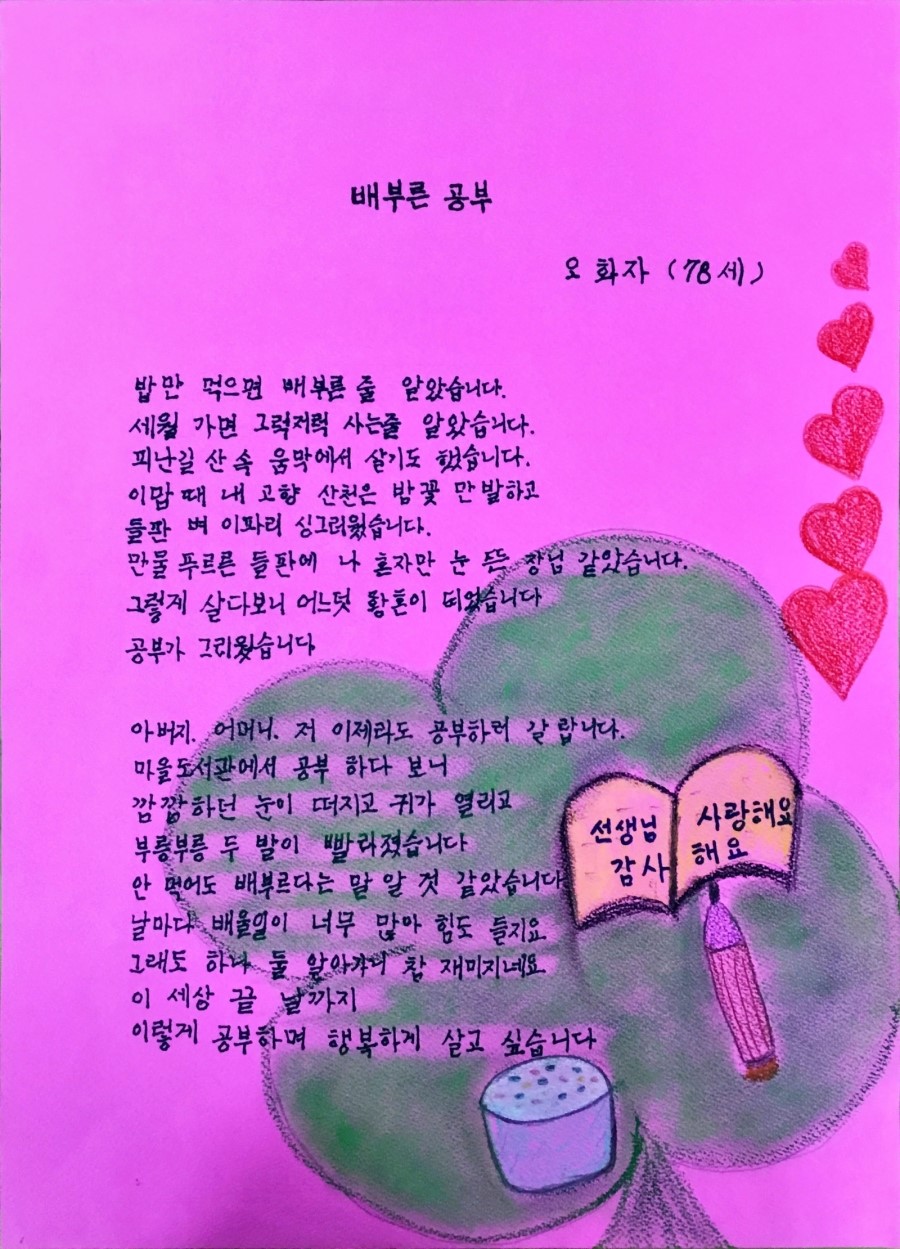 배부른 공부
오 화자 (78세)
밥만 먹으면 배부른 줄 알았습니다.
세월 가면 그럭저럭 사는줄 알았습니다.
피난길 산 속 움막에서 살기도 했습니다.
이맘 때 내 고향 산천은 밤꽃 만발하고
들판 벼 이파리 싱그러웠습니다.
만물 푸르른 들판에 나 혼자만 눈 뜬 장님 같았습니다.
그렇게 살다보니 어느덧 황혼이 되었습니다
공부가 그리웠습니다
아버지. 어머니. 저 이제라도 공부하러 갈 랍니다.
마을도서관에서 공부 하다 보니
깜깜하던 눈이 떠지고 귀가 열리고
부릉부릉 두 발이 빨라졌습니다
안 먹어도 배부르다는 말 알 것 같았습니다
날마다 배울일이 너무 많아 힘도 들지요
그래도 하나 둘 알아가니 참 재미지네요
이 세상 끝 날까지
이렇게 공부하며 행복하게 살고 싶습니다
선생님
감사
사랑해요
해요